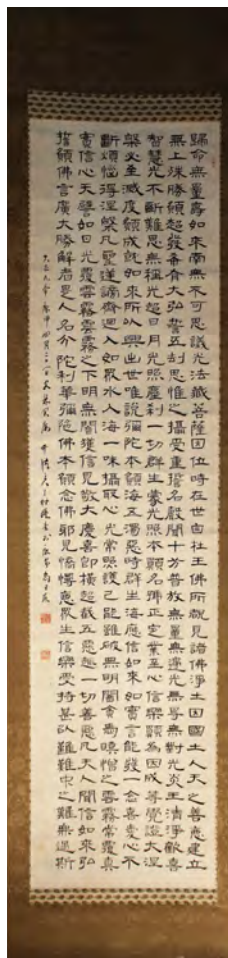 歸命無量壽如來南無不可思議光法藏菩薩因位時在世自在王佛所覩見諸佛淨土因國土人天之善惡建立
無上殊勝願超發希有大弘誓五劫思惟之攝受重誓名聲聞十方普放無量無邊光無㝵無對光炎王清淨歡喜
智慧光不斷難思無稱光超日月光照塵刹一切群生蒙光照本願名號正定業至心信樂願為因成等覺證大涅
槃必至滅度願成就如來所以興出世唯說彌陀本願海五濁惡時群生海應信如來如實言能發一念喜愛心不
斷煩惱得涅槃凡聖逆謗齊迴入如眾水入海一味攝取心光常照護已能雖破無明闇貪愛瞋憎之雲霧常覆真
實信心天譬如日光覆雲霧雲霧之下明無闇獲信見敬大慶喜即橫超截五惡趣一切善惡凡夫人聞信如來弘
誓願佛言廣大勝解者是人名分陀利華彌陀佛本願念佛邪見憍慢惡眾生信樂受持甚以難難中之難無過斯
庚申四月